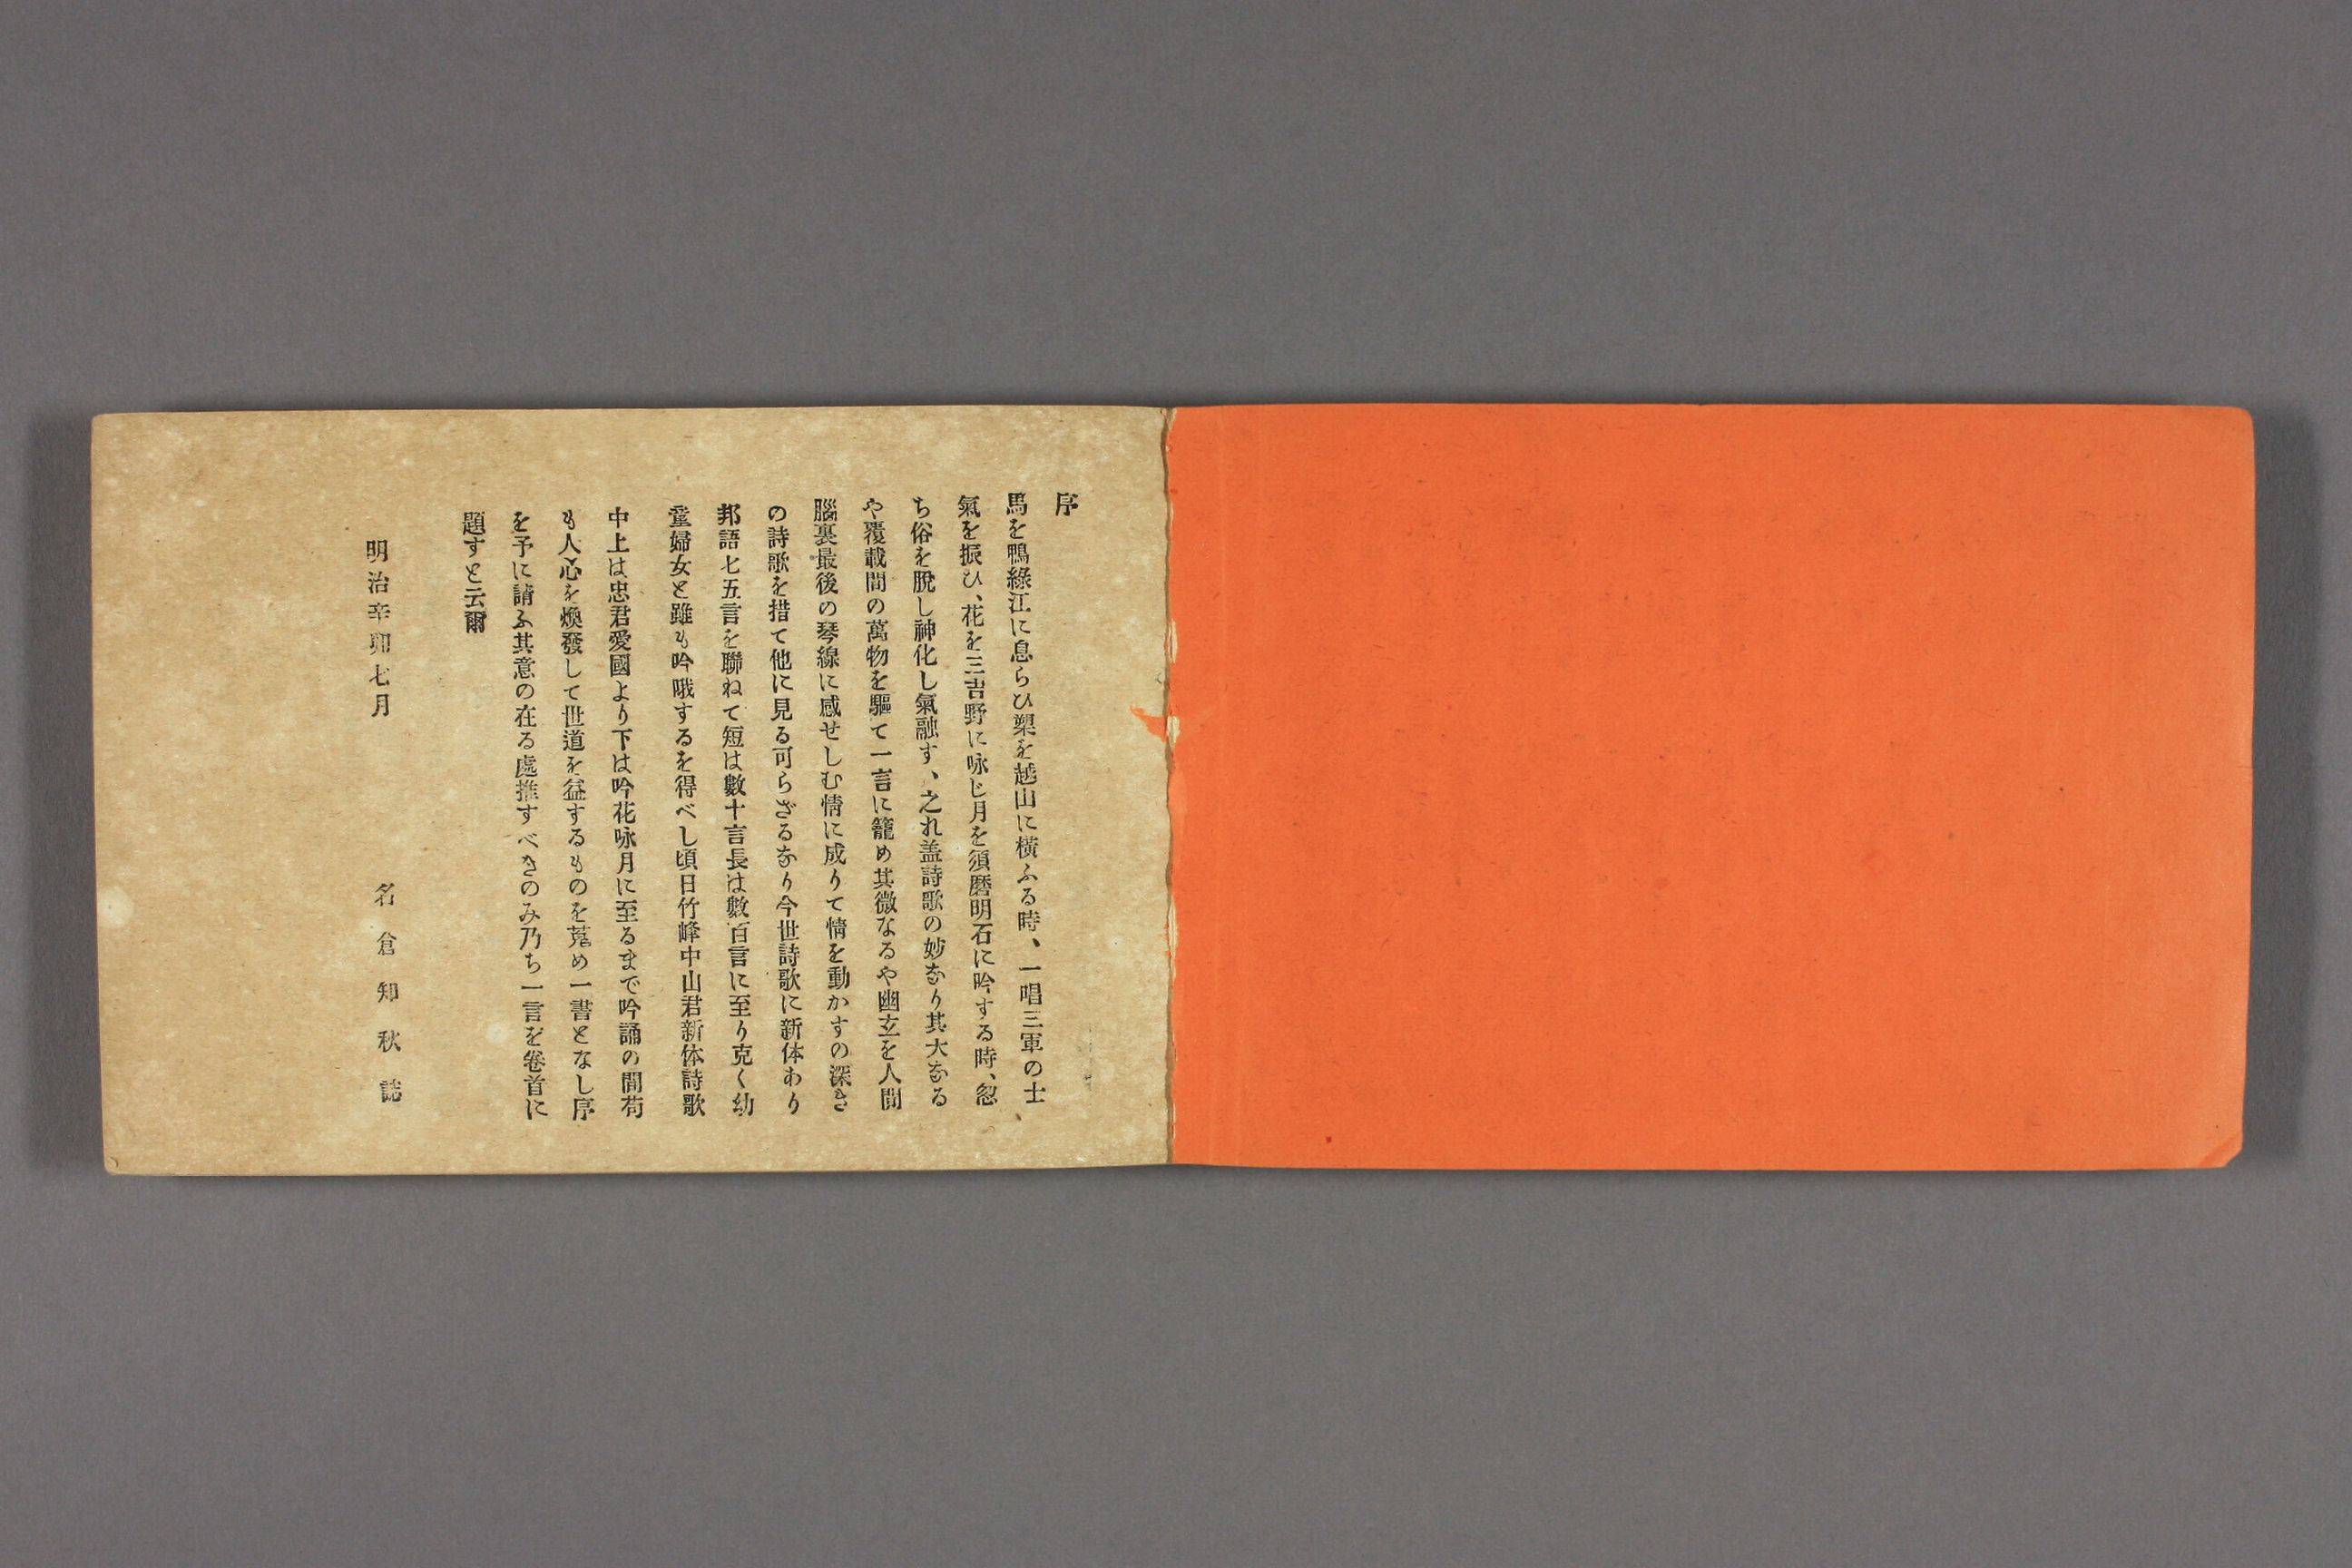 序
馬を鴨綠江に息らひ槊を越山に橫ふる時、一唱三軍の士
氣を振ひ、花を三吉野に咏じ月を須磨明石に吟する時、忽
ち俗を脫し神化し氣融す、之れ盖詩歌の妙なり其大なる
や覆載間の萬物を驅て一言に籠め其微なるや幽玄を人間
腦裏最後の琴線に感せしむ情に成りて情を動かすの深き
の詩歌を措て他に見る可らざるなり今世詩歌に新体あり
邦語七五言を聯ねて短は數十言長は數百言に至り克く幼
童婦女と雖も吟哦するを得べし頃日竹峰中山君新体詩歌
中上は忠君愛國より下は吟花咏月に至るまで吟誦の間苟
も人心を煥發して世道を益するものを蒐め一書となし序
を予に請ふ其意の在る處推すべきのみ乃ち一言を卷首に
題すと云爾
明治辛卯七月
名倉知秋誌